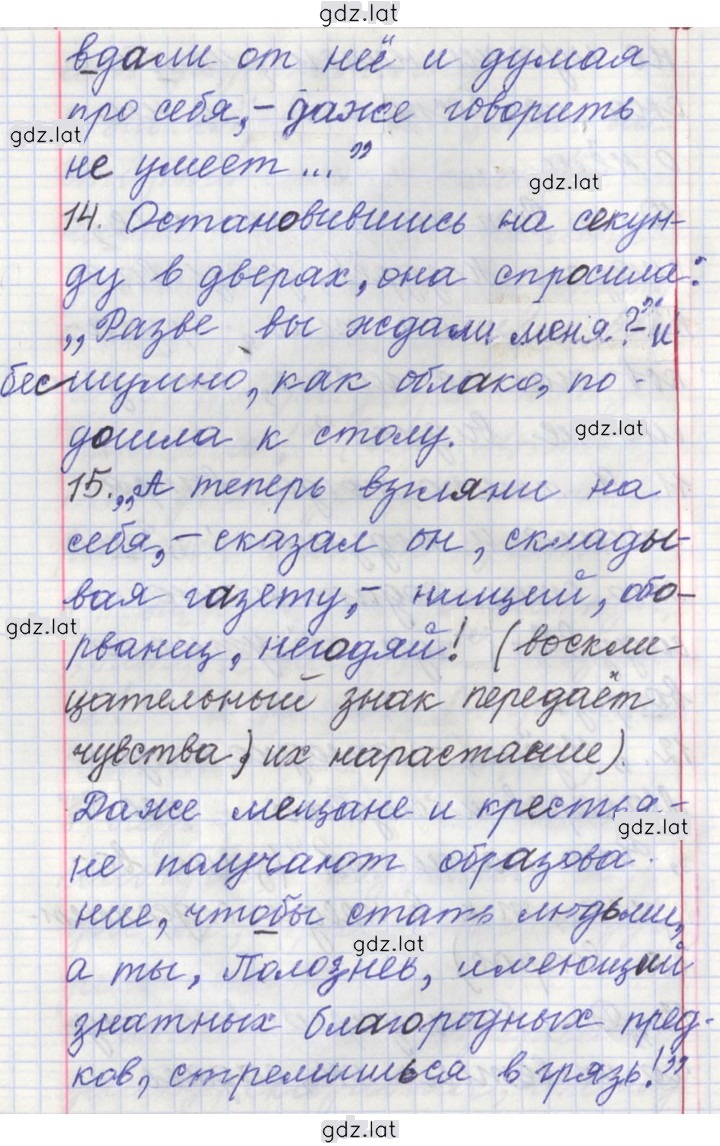 gdz.lat
вдали от неё и думая
про себя, – даже говорить
gdz.lat
не умеет..."
gdz.lat
14. Остановившись на секун-
ду в дверях, она спросила:
„Разве вы ждали меня?" – и
бесшумно, как облако, по-
дошла к столу.
gdz.lat
15. „А теперь взгляни на
себя, – сказал он, склады-
вая газету, – нищий, обо-
gdz.lat
рванец, негодяй! (воскли-
цательный знак передаёт
чувства, их нарастание).
Даже мещане и крестья-
gdz.lat
не получают образова-
ние, чтобы стать людьми,
gdz.lat
а ты, Полознев, имеющий
знатных благородных пред-
ков, стремишься в грязь!"
gdz.lat